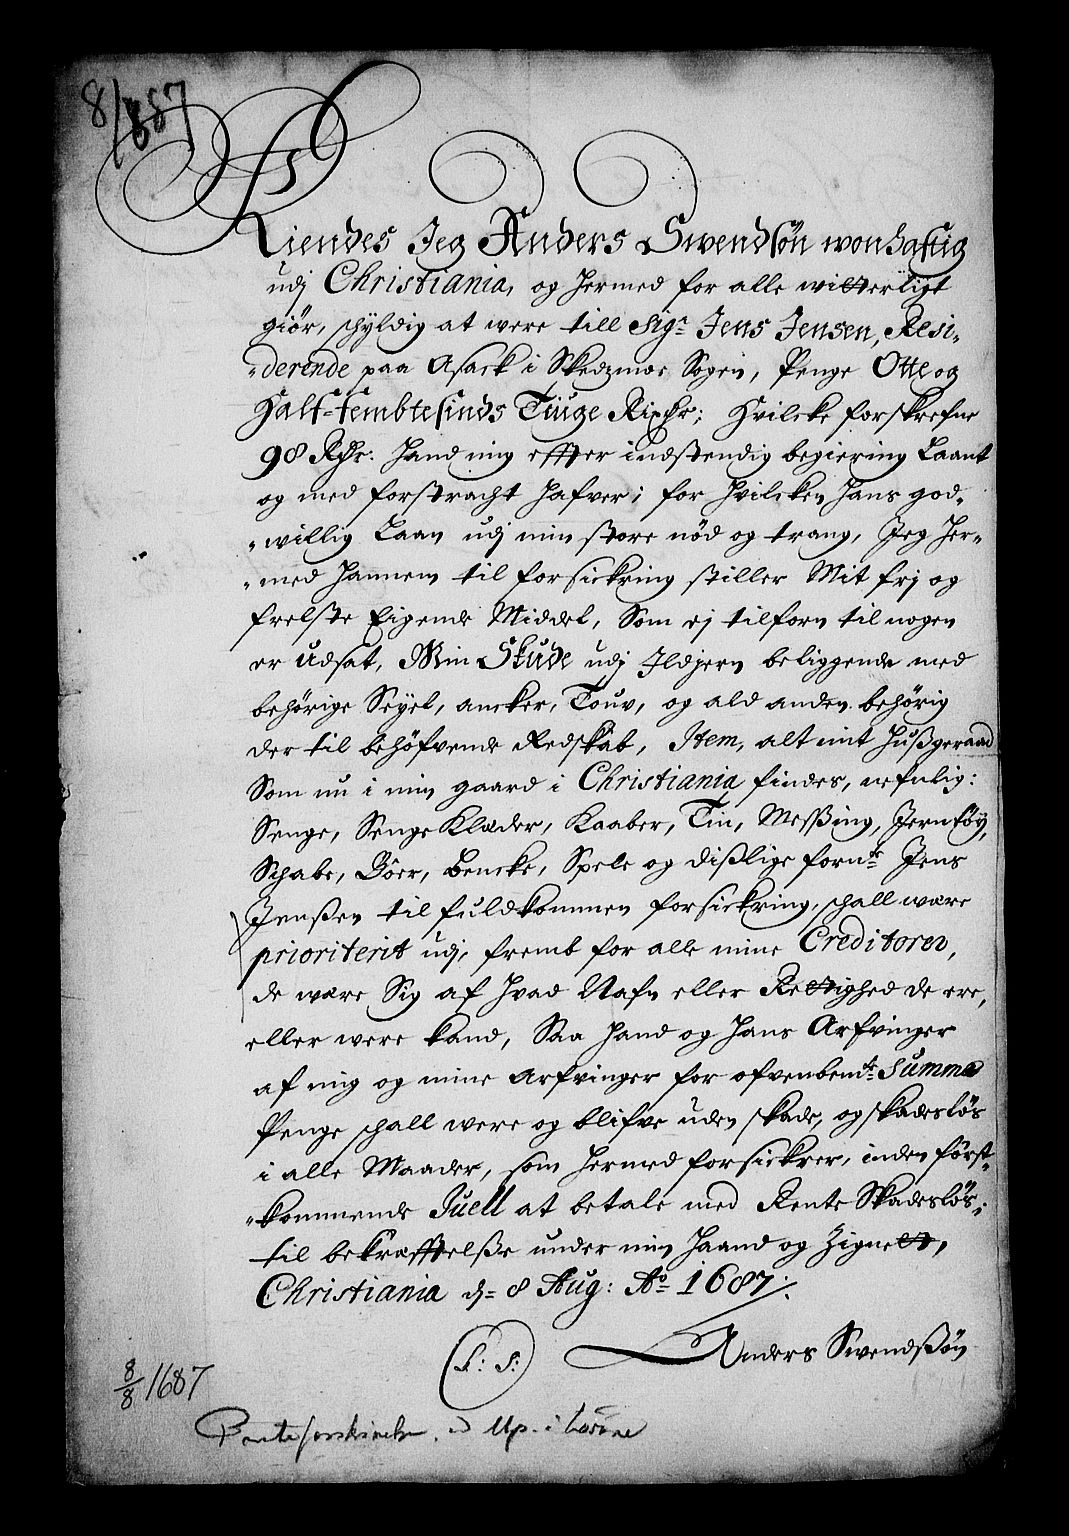 8/8 87
Kiendes Jeg Anders Swendsøn wonhafftig
udj Christiania, og hermed for alle witterligt
giør, schyldig at were till Sigr Jens Jensen, Resi-
-derende paa Asack i Skedzmoe Sogen, Penge Otte og
Half-fembtesinds Tiuge Rixdr; Hvilcke forskrefne
98 Rdr. hand mig effter indstendig begiering Laant
og med forstracht hafver; for hvilcken hans god-
-willig Laan udj min store nød og trang, Jeg her-
-med hannem til forsickring stiller Mit frj og
frelste Eigende Middel, Som ej tilforn til nogen
er udsat, Min Skude udj Ildjern beliggende med
behørige Seyel, ancker, Touv, og ald anden behørig
der til behøfvende Redskab, Item, alt mit hußgeraad
Som nu i min gaard i Christiania findes, nefnlig:
Senge, Senge Klæder, Kaaber, Tin, Meßing, Jerntöy,
Schabe, Böer, Bencke, Spele og dißlige fornte Jens
Jenßen til fuldkommen forsickring, schall være
prioriterit udj, fremb for alle mine Creditorer,
de være Sig af hvad Nafn eller Rettighed de ere,
eller were kand, Saa hand og hans Arfvinger
af mig og mine Arfvinger for ofvenbemte Summa
Penge schall were og blifve uden skade, og skadesløs
i alle Maader, som hermed forsickrer, inden först-
-kommende Juell at betale med Rente Skadesløs;
til bekræfftelße under min haand og Zignett,
Christiania d= 8 Aug: Ao 1687.
(L: S:) Anders Swendßøn
8/8 1687